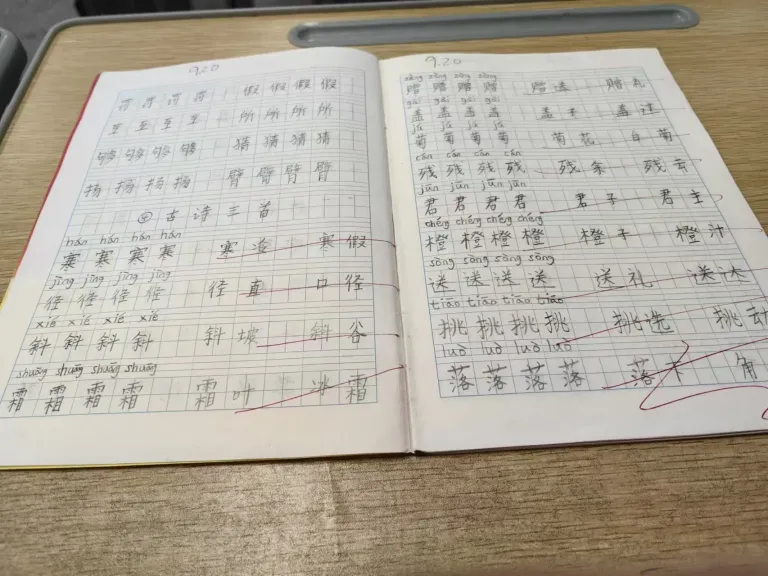 9.20
符 符 符 符 假 假 假 假
至 至 至 至 所 所 所 所
够 够 够 够 猜 猜 猜 猜
扬 扬 扬 扬 臂 臂 臂 臂
④ 古 诗 三 首
hán hán hán hán
寒 寒 寒 寒 寒 寒 假
jìng jìng jìng jìng
径 径 径 径 径 直 口 径
xié xié xié xié
斜 斜 斜 斜 斜 坡 斜 谷
shuāng shuāng shuāng shuāng
霜 霜 霜 霜 霜 叶 冰 霜
9.20
zèng zèng zèng zèng
赠 赠 赠 赠 赠 送 赠 礼
gài gài gài gài
盖 盖 盖 盖 盖 子 盖 过
jú jú jú jú
菊 菊 菊 菊 菊 花 白 菊
cán cán cán cán
残 残 残 残 残 余 残 云
jūn jūn jūn jūn
君 君 君 君 君 子 君 主
chéng chéng chéng chéng
橙 橙 橙 橙 橙 子 橙 汁
sòng sòng sòng sòng
送 送 送 送 送 礼 送 达
tiāo tiāo tiāo tiāo
挑 挑 挑 挑 挑 选 挑 动
luò luò luò luò
落 落 落 落 落 下 角